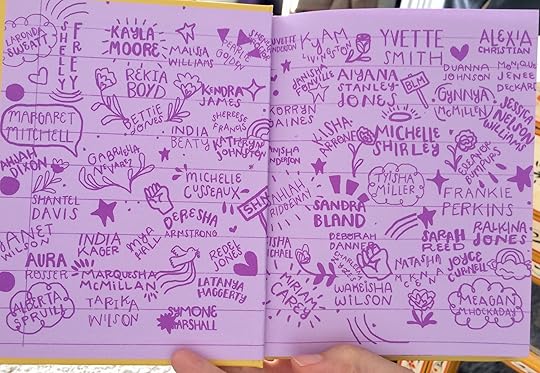 LARONDA
SWEATT
SHELLY
FREY
KAYLA
MOORE
MALISSA
WILLIAMS
PEARLIE
GOLDEN
REKIA
BOYD
KENDRA
JAMES
BETTIE
JONES
SHEREESE
FRANCIS
MARGARET
MITCHELL
INDIA
BEATY
KATHRYN
JOHNSTON
DIXON
GABRIELLA
NEVAREZ
MICHELLE
CUSSEAUX
SHANTEL
DAVIS
SHN
DERESHA
ARMSTRONG
JANET
WILSON
INDIA
KAGER
MYA
HALL
REDEL
JONES
AURA
ROSSER
MARQUESHA
MCMILLAN
LATANYA
HAGGERTY
ALBERTA
SPRUILL
TARIKA
WILSON
SYMONE
MARSHALL
YVETTE
HENDERSON
KYAM
LIVINGSTON
YVETTE
SMITH
ALEXIA
CHRISTIAN
TANISHA
AIYANA
STANLEY
JONES
BLM
DUANNA
JOHNSON
MONIQUE
JENEE
DECKARD
KORRYN
GAINES
GYNNYA
MCMILLEN
JESSICA
NELSON
WILLIAMS
KISHA
ARRONE
MICHELLE
SHIRLEY
TANISHA
ANDERSON
ELEANOR
BUMPURS
TYISHA
MILLER
FRANKIE
PERKINS
SANDRA
BLAND
DEBORAH
DANNER
SARAH
REED
RALKINA
JONES
KISHA
MICHAEL
NATASHA
MCKENNA
JOYCE
CURNELL
MIRIAM
CAREY
WAKEISHA
WILSON
MEAGAN
HOCKADAY